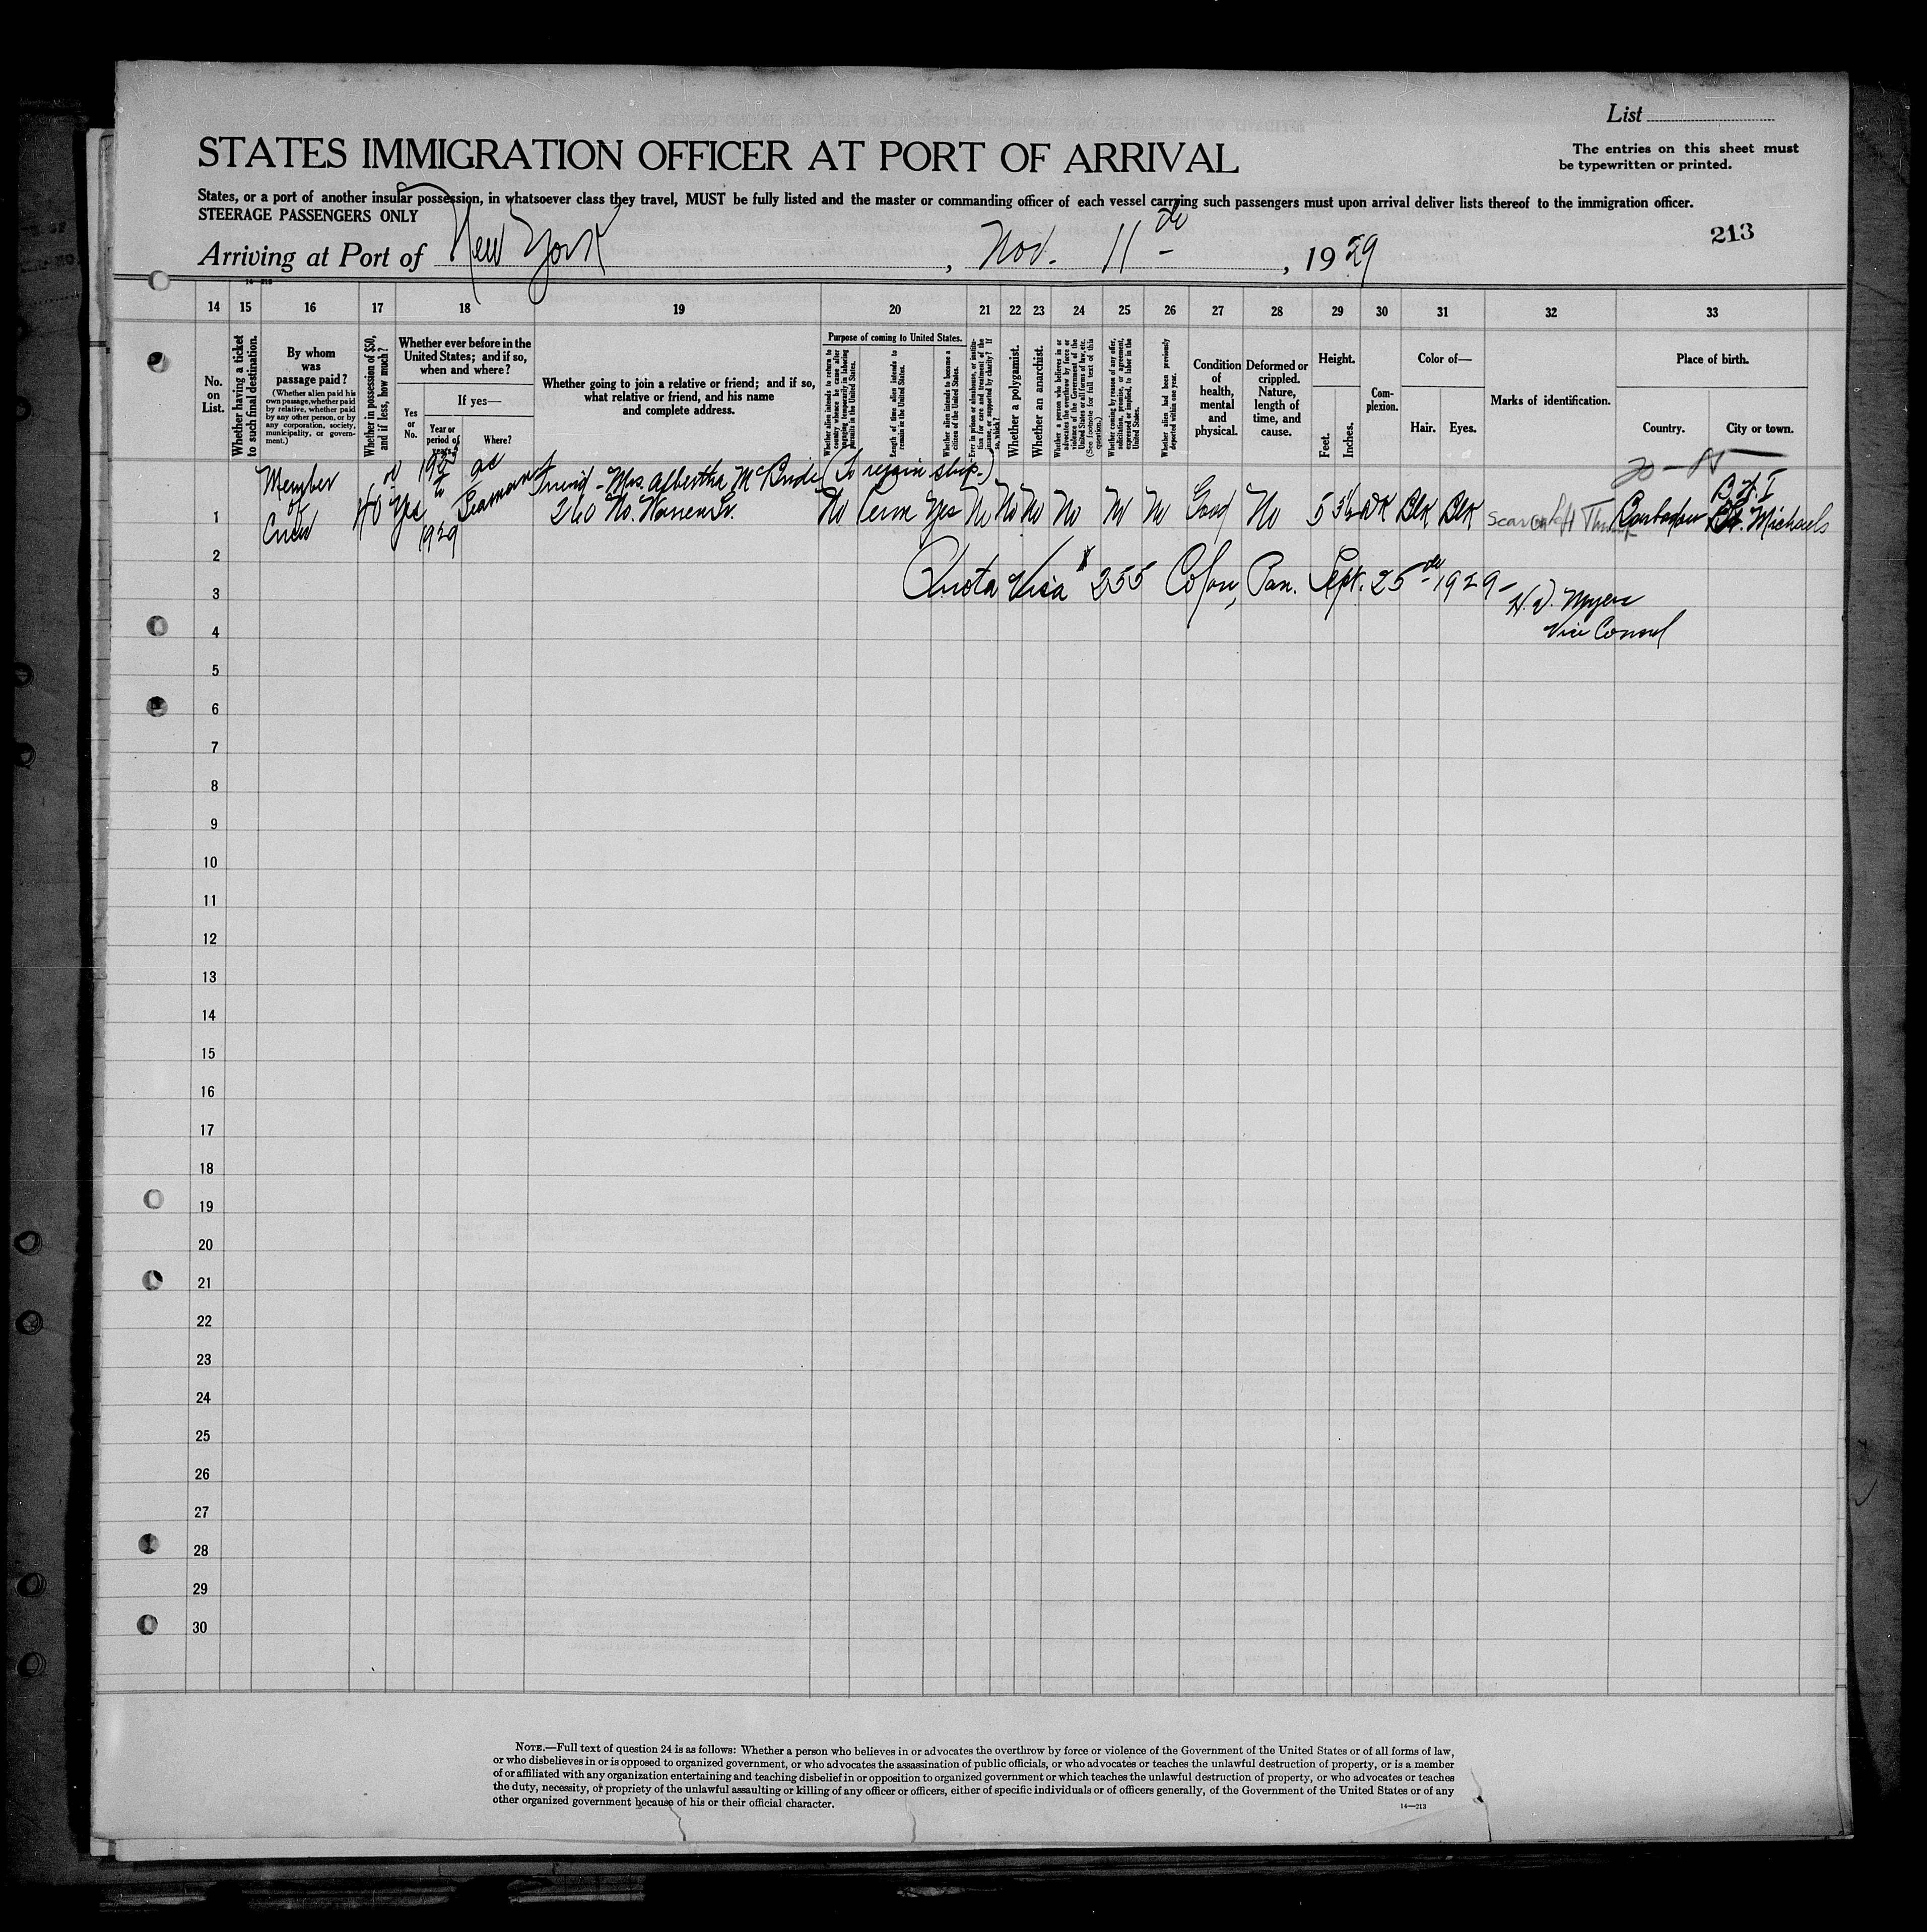 List
STATES IMMIGRATION OFFICER AT PORT OF ARRIVAL
The entries on this sheet must
be typewritten or printed.
States, or a port of another insular possession, in whatsoever class they travel, MUST be fully listed and the master or commanding officer of each vessel carrying such passengers must upon arrival deliver lists thereof to the immigration officer.
STEERAGE PASSENGERS ONLY
213
Arriving at Port of New York, Nov. 11th, 1929
14 15 16 17 18 19 20 21 22 23 24 25 26 27 28 29 30 31 32 33
No. on List.
Whether having a ticket to such final destination.
By whom was passage paid?
(Whether alien paid his own passage, whether paid by relative, whether paid by any other person, or by any corporation, society, municipality, or government.)
Whether in possession of $50, and if less, how much?
Whether ever before in the United States; and if so, when and where?
Yes or No.
If yes—
Year or period of years.
Where?
Whether going to join a relative or friend; and if so, what relative or friend, and his name and complete address.
Purpose of coming to United States.
Whether alien intends to return to country whence he came after engaging temporarily in laboring pursuits in the United States.
Length of time alien intends to remain in the United States.
Whether alien intends to become a citizen of the United States.
Ever in prison or almshouse, or institution for care and treatment of the insane, or supported by charity? If so, which?
Whether a polygamist.
Whether an anarchist.
Whether a person who believes in or advocates the overthrow by force or violence of the Government of the United States or all forms of law, etc. (See footnote for full text of this question.)
Whether coming by reason of any offer, solicitation, promise, or agreement, expressed or implied, to labor in the United States.
Whether alien had been previously deported within one year.
Condition of health, mental and physical.
Deformed or crippled. Nature, length of time, and cause.
Height.
Feet. Inches.
Complexion.
Color of—
Hair. Eyes.
Marks of identification.
Place of birth.
Country. City or town.
Member of Crew
40 Yes 1923 to 1929 as Seaman
Friend - Mrs. Albertha McBride (To rejoin ship.)
260 No. Warren St.
No Perm Yes No No No No No No Good No 5 3½ DK Blk Blk Scar on left Thumb Barbados B.W.I St. Michaels
Quota Visa # 255 Colon, Pan. Sept. 25th 1929
H. D. Myers
Vice Consul
1
2
3
4
5
6
7
8
9
10
11
12
13
14
15
16
17
18
19
20
21
22
23
24
25
26
27
28
29
30
NOTE.—Full text of question 24 is as follows: Whether a person who believes in or advocates the overthrow by force or violence of the Government of the United States or of all forms of law,
or who disbelieves in or is opposed to organized government, or who advocates the assassination of public officials, or who advocates or teaches the unlawful destruction of property, or is a member
of or affiliated with any organization entertaining and teaching disbelief in or opposition to organized government or which teaches the unlawful destruction of property, or who advocates or teaches
the duty, necessity, or propriety of the unlawful assaulting or killing of any officer or officers, either of specific individuals or of officers generally, of the Government of the United States or of any
other organized government because of his or their official character.
14—213